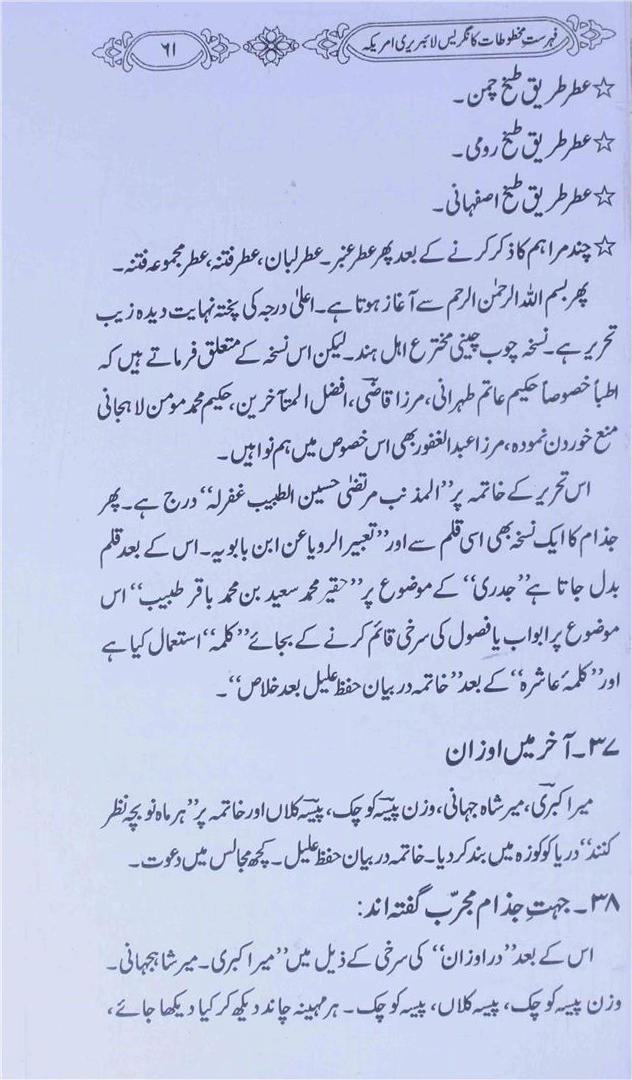 فہرستِ مخطوطات کانگریس لائبریری امریکہ
۶۱
☆ عطر طریق طبخ چمن۔
☆ عطر طریق طبخ رومی۔
☆ عطر طریق طبخ اصفہانی۔
☆ چند مراہم کا ذکر کرنے کے بعد پھر عطر عنبر۔ عطر لبان، عطر فتنہ، عطر مجموعہ فتنہ۔
پھر بسم اللہ الرحمٰن الرحم سے آغاز ہوتا ہے۔ اعلیٰ درجہ کی پختہ نہایت دیدہ زیب
تحریر ہے۔ نسخہ چوب چینی مخترع اہل ہند۔ لیکن اس نسخہ کے متعلق فرماتے ہیں کہ
اطبأ خصوصاً حکیم عاتم طہرانی، مرزا قاضی، افضل المتآخرین، حکیم محمد مومن لاہجانی
منع خوردن نمودہ، مرزا عبدالغفور بھی اس خصوص میں ہم نوا ہیں۔
اس تحریر کے خاتمہ پر ”المذنب مرتضیٰ حسین الطبیب غفرلہ“ درج ہے۔ پھر
جذام کا ایک نسخہ بھی اسی قلم سے اور ”تعبیر الرویا عن ابن بابویہ۔ اس کے بعد قلم
بدل جاتا ہے ”جدری“ کے موضوع پر ”حقیر محمد سعید بن محمد باقر طبیب“ اس
موضوع پر ابواب یا فصول کی سرخی قائم کرنے کے بجائے ”کلمہ“ استعمال کیا ہے
اور ”کلمۂ عاشرہ“ کے بعد ”خاتمہ در بیان حفظ علیل بعد خلاص“۔
۳۷۔ آخر میں اوزان
میر اکبری، میر شاہ جہانی، وزن پیسہ کوچک، پیسہ کلاں اور خاتمہ پر ”ہر ماہ نو بچہ نظر
کنند“ دریا کو کوزہ میں بند کر دیا۔ خاتمہ در بیان حفظ علیل۔ کچھ مجالس میں دعوت۔
۳۸۔ جہتِ جذام مجرّب گفتہ اند:
اس کے بعد ”در اوزان“ کی سرخی کے ذیل میں ”میر اکبری۔ میر شاہجہانی۔
وزن پیسہ کوچک، پیسہ کلاں، پیسہ کوچک۔ ہر مہینہ چاند دیکھ کر کیا دیکھا جائے،